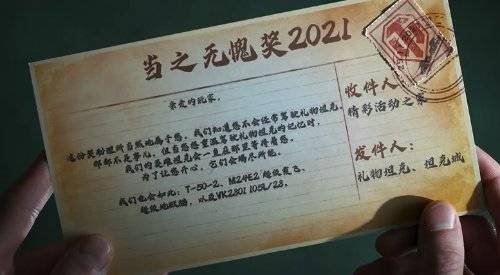 当之无愧奖2021
亲爱的玩家,
这份奖励理所当然地属于您。我们知道您不会经常驾驶礼物坦克,
那都不是事儿。但当您重温驾驶礼物坦克的记忆时,
我们的英雄坦克会一直在那里等待着您。
为了让您开心,它们会竭尽所能。
我们也会如此:T-50-2, M24E2 超级霞飞,
超级地狱猫, 以及VK2801 105L/28。
收件人:
精彩活动之家
发件人:
礼物坦克、坦克城